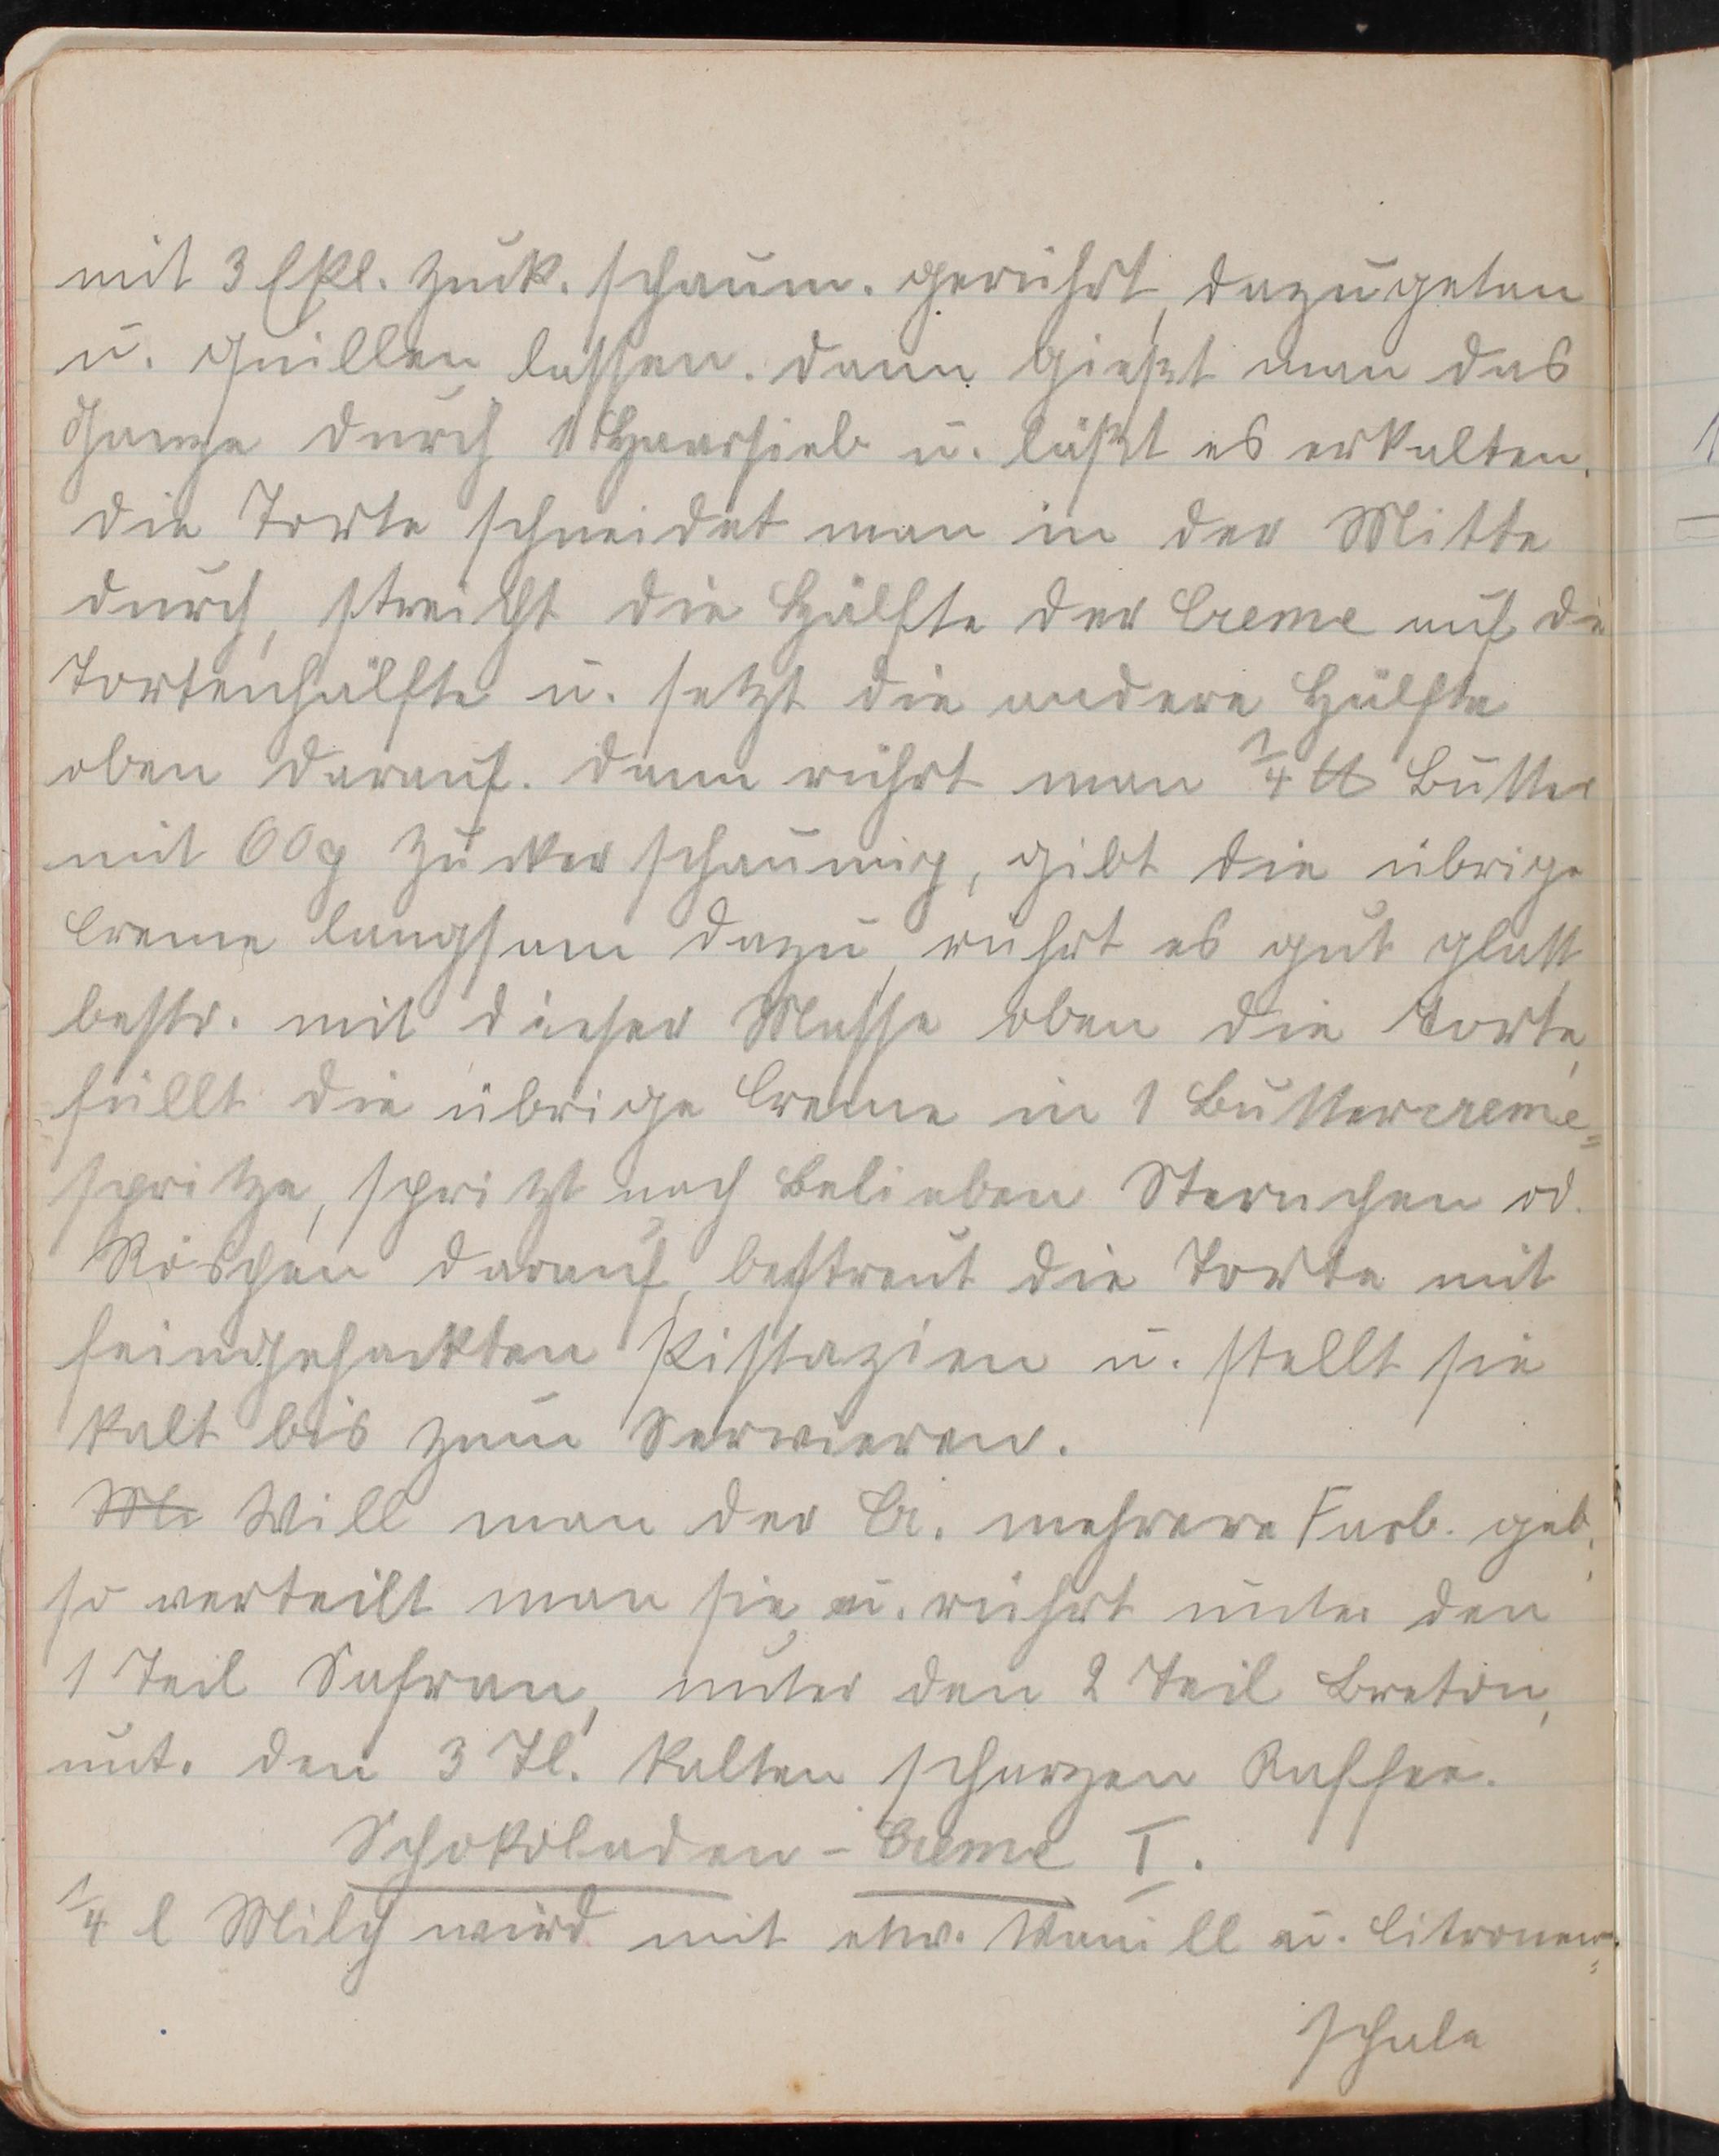 mit 3 Eßl. Zuck. schaum. gerührt, dazugetan
u. quillen lassen. dann gießt man das
Ganze durch 1 Haarsieb u. läßt es erkalten.
die Torte schneidet man in der Mitte
durch, streicht die Hälfte der Creme auf die
Tortenhälfte u. setzt die andere Hälfte
oben darauf. dann rührt man 1/4 ℔ Butter
mit 60g Zucker schaumig, gibt die übrige
Creme langsam dazu, rührt es gut glatt
bestr. mit dieser Masse oben die Torte,
füllt die übrige Creme in 1 Buttercreme=
spritze, spritzt nach Belieben Sternchen od.
Röschen darauf, bestreut die Torte mit
feingehackten Pistazien u. stellt sie
kalt bis zum Servieren.
Mi Will man der Cr. mehrere Farb. geb.,
so verteilt man sie u. rührt unter den
1 Teil Safran, unter den 2 Teil Breton,
unt. den 3 Tl. kalten schwarzen Kaffee.
Schokoladen-Creme I.
1/4 l Milch wird mit etw. Vanill u. Citronen=
schale